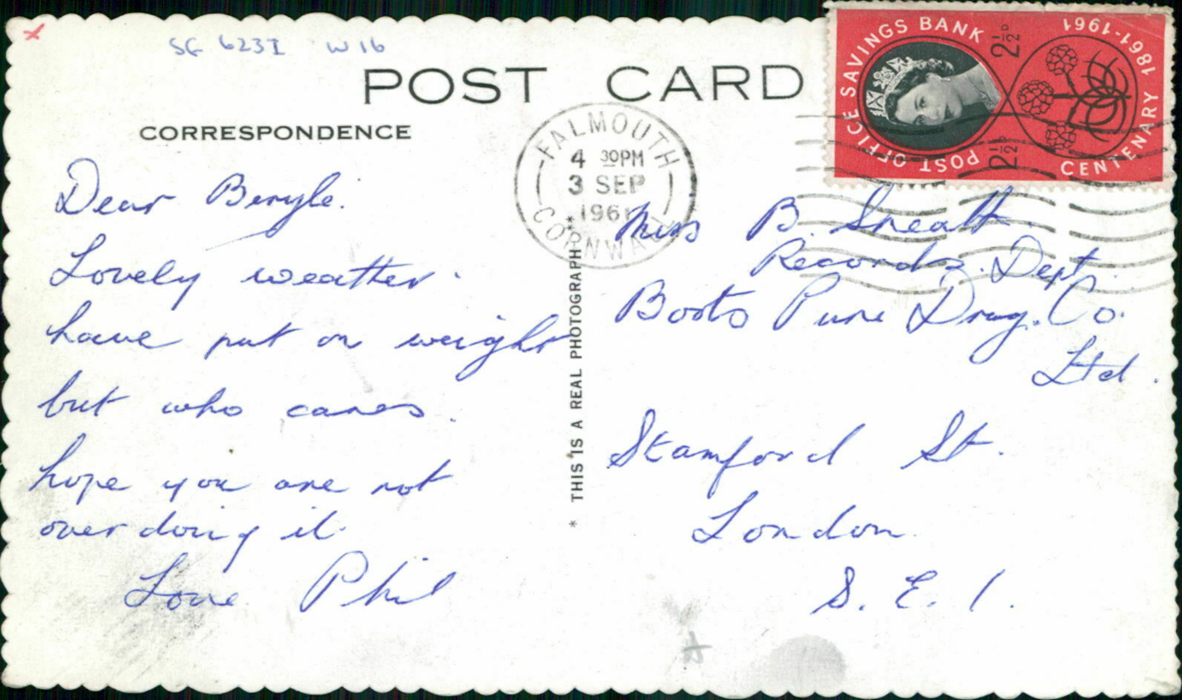 SG 623I W16
POST CARD
CORRESPONDENCE
Dear Beryle.
Lovely weather.
have put on weight
but who cares.
hope you are not
over doing it.
Love Phil
* THIS IS A REAL PHOTOGRAPH *
FALMOUTH
4 30PM
3 SEP
1961
CORNWALL
POST OFFICE SAVINGS BANK
2½D
2½D
1861-1961
CENTENARY
Miss B. Sneath.
Records. Dept.
Boots Pure Drug. Co.
Ltd.
Stamford St.
London.
S. E. 1.